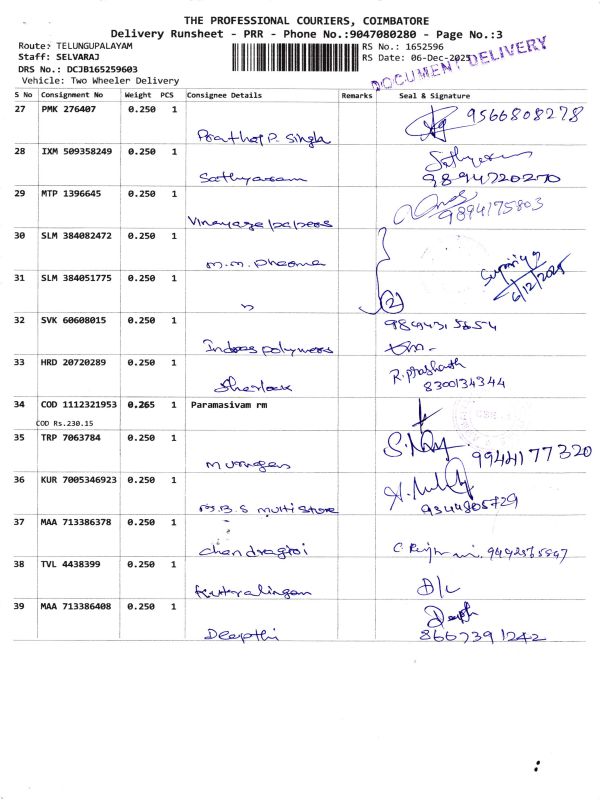 THE PROFESSIONAL COURIERS, COIMBATORE
Delivery Runsheet - PRR - Phone No.:9047080280 - Page No.:3
Route: TELUNGUPALAYAM
Staff: SELVARAJ
DRS No.: DCJB165259603
Vehicle: Two Wheeler Delivery
RS No.: 1652596
RS Date: 06-Dec-2025
DOCUMENT DELIVERY
S No Consignment No Weight PCS Consignee Details Remarks Seal & Signature
27 PMK 276407 0.250 1 9566808278
Prathap P. Singla
28 IXM 509358249 0.250 1 Sathyaram
Sathyaram 9894720270
29 MTP 1396645 0.250 1
Vinayaga papers 9894175803
30 SLM 384082472 0.250 1
m.m. pharma
31 SLM 384051775 0.250 1 6/12/2025
" 2
32 SVK 60608015 0.250 1 9894315654
Indoos polymers
33 HRD 20720289 0.250 1 R. Prashanth
Sherlock 8300134344
34 COD 1112321953 0.265 1 Paramasivam rm
COD Rs.230.15
35 TRP 7063784 0.250 1
Murugan 9944177320
36 KUR 7005346923 0.250 1
M.B.S multi store 9344805729
37 MAA 713386378 0.250 1
38 TVL 4438399 0.250 1 D/L
Kutralingam
39 MAA 713386408 0.250 1 Deepth
Deepthi 8667391242